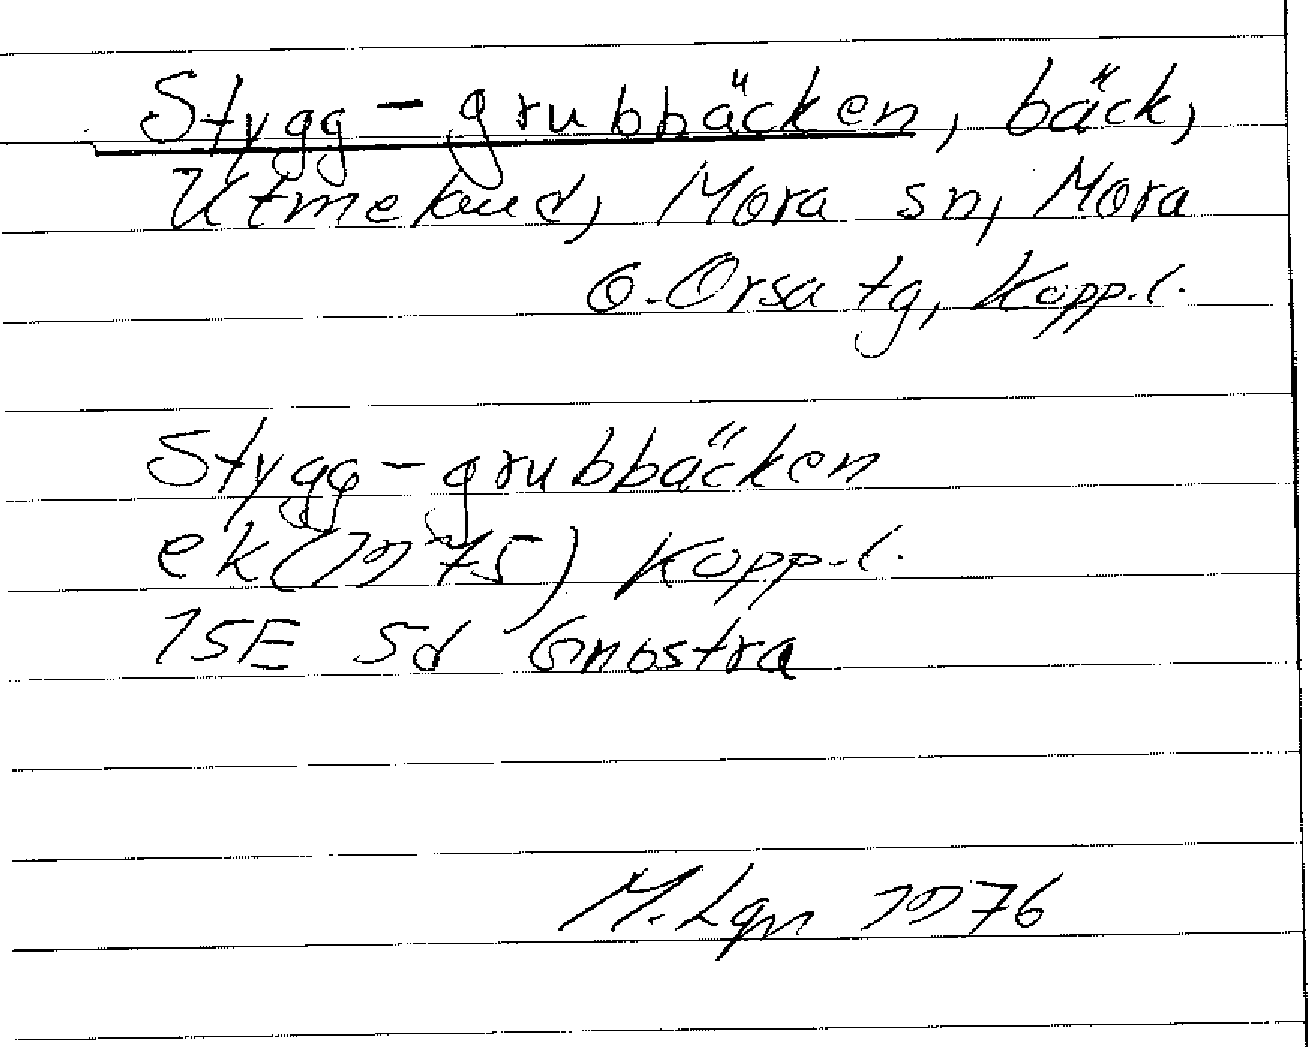 Stygg-grubbäcken, bäck,
Utmeland, Mora sn, Mora
o. Orsa tg, Kopp.l.
Stygg-grubbäcken
ek (1975) Kopp.l.
15E 5d Gnostra
M. Lgn 1976